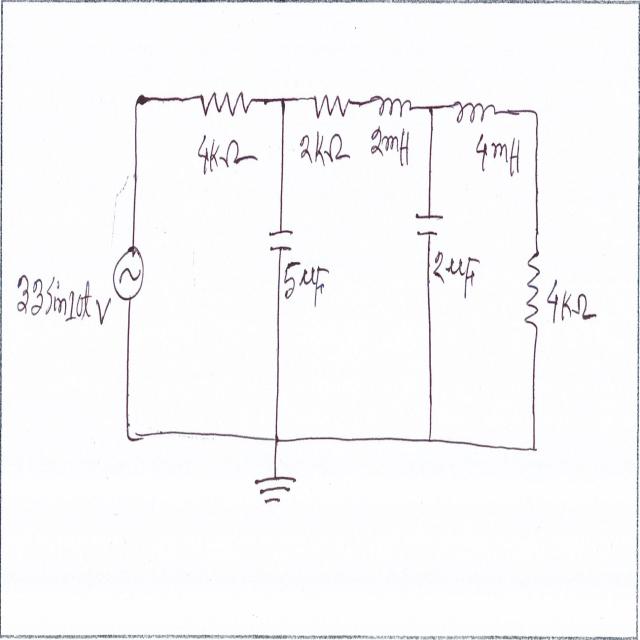 4KΩ
2KΩ
2mH
4mH
33Sin10t V
5μF
2μF
4KΩ